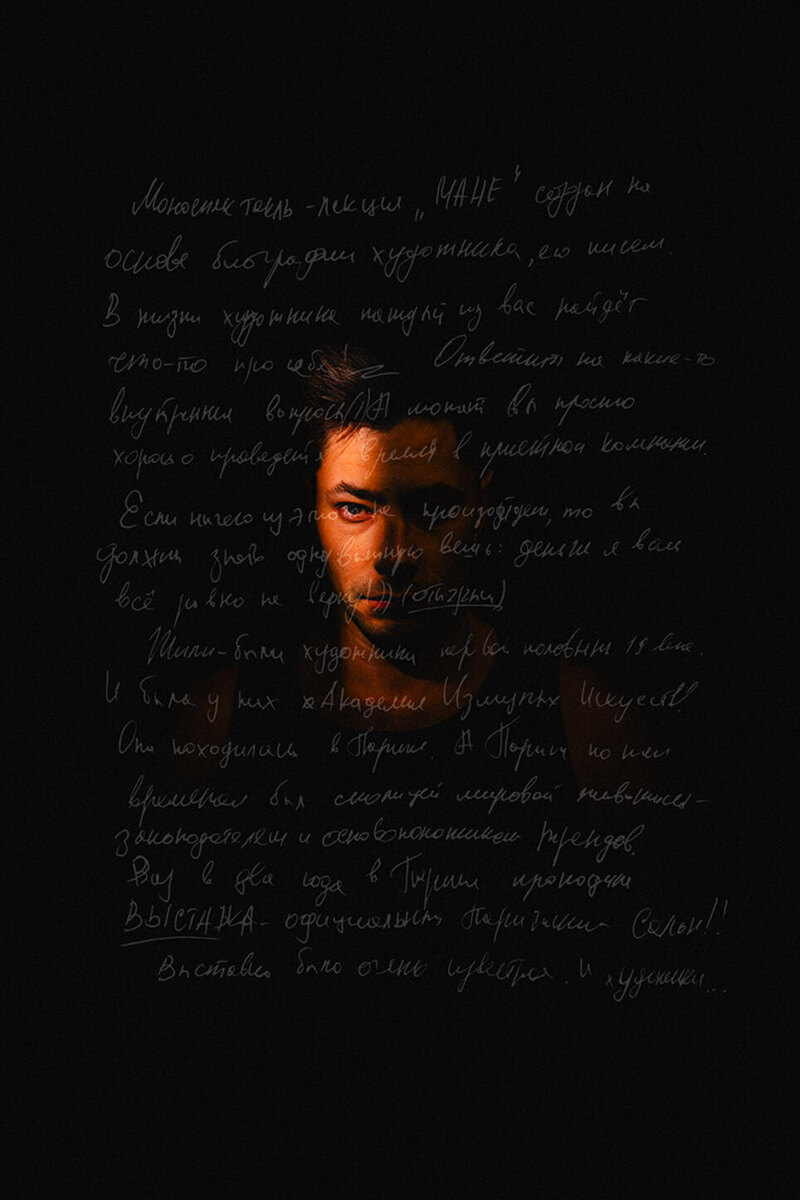 Моноспектакль-лекция „МАНЕ" создан на
основе биографии художника, его писем.
В жизни художника каждый из вас найдёт
что-то про себя! Ответит на какие-то
внутренние вопросы)) А может Вы просто
хорошо проведёте время в приятной компании.
Если ничего из этого не произойдёт, то вы
должны знать одну важную вещь: деньги я вам
всё равно не верну!)) (отыграны)
Жили-были художники первой половины 19 века.
И была у них Академия Изящных Искусств!
Она находилась в Париже. А Париж по тем
временам был столицей мировой живописи-
законодателем и основоположником трендов.
Раз в два года в Париже проходила
ВЫСТАВКА - официальный Парижский Салон!!
Выставка была очень известная. И художники...